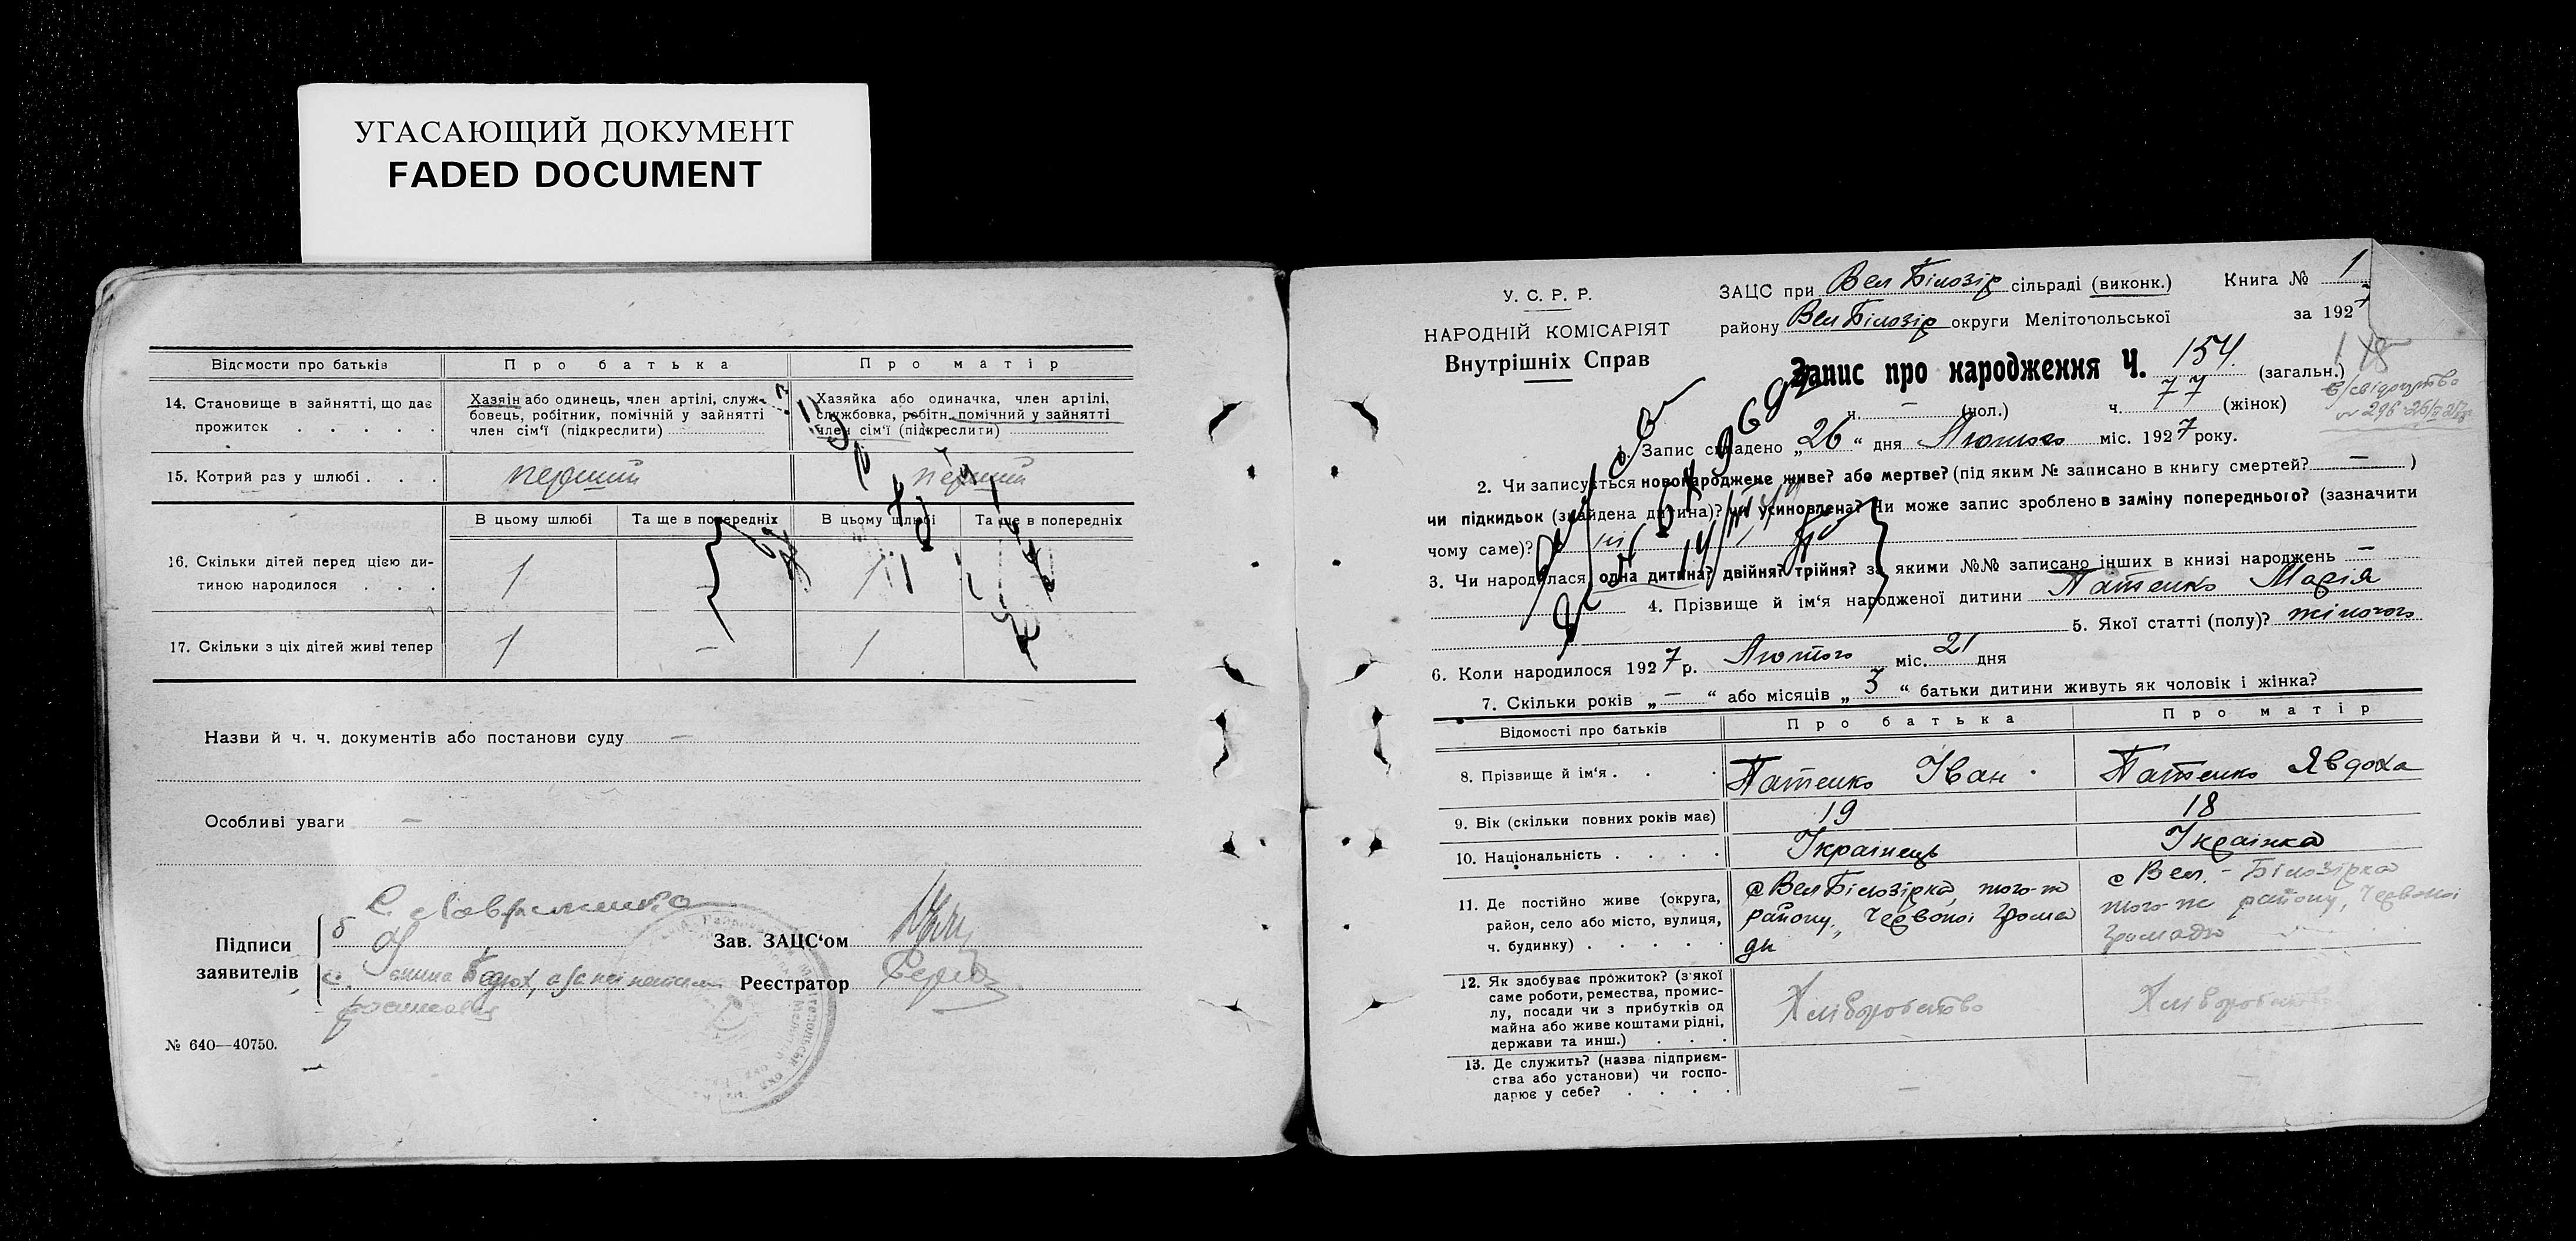 УГАСАЮЩИЙ ДОКУМЕНТ
FADED DOCUMENT
Відомости про батьків
Про батька
Про матір
14. Становище в зайнятті, що дає прожиток . . . . .
Хазяїн або одинець, член артілі, служ-
бовець, робітник, помічній у зайнятті
член сім'ї (підкреслити)
Хазяйка або одиначка, член артілі,
службовка, робітн. помічний у зайнятті
член сім'ї (підкреслити)
15. Котрий раз у шлюбі . . .
перший
перший
В цьому шлюбі
Та ще в попередніх
В цьому шлюбі
Та ще в попередніх
16. Скільки дітей перед цією ди-
тиною народилося . . .
1
—
1
17. Скільки з ціх дітей живі тепер
1
—
1
Назви й ч. ч. документів або постанови суду —
Особливі уваги —
Підписи
заявителів
Зав. ЗАЦС'ом
Реєстратор
№ 640—40750.
У. С. Р. Р.
НАРОДНІЙ КОМІСАРІЯТ
Внутрішніх Справ
ЗАЦС при Вел Білозір сільраді (виконк.)
Книга № 1
району Вел Білозір округи Мелітопольської
за 1927
Запис про народження Ч. 154. (загальн.)
ч. — (чол.) ч. 77 (жінок)
1. Запис складено „26“ дня Лютого міс. 1927 року.
2. Чи записується новонароджене живе? або мертве? (під яким № записано в книгу смертей? — )
чи підкидьок (знайдена дитина)? чи усиновлена? Чи може запис зроблено в заміну попереднього? (зазначити
чому саме)?
3. Чи народилася одна дитина? двійня? трійня? за якими №№ записано інших в книзі народжень —
4. Прізвище й ім'я народженої дитини Патенко Марія
5. Якої статті (полу)? жіночого
6. Коли народилося 1927 р. Лютого міс. 21 дня
7. Скільки років „—“ або місяців „3“ батьки дитини живуть як чоловік і жінка?
Відомості про батьків
Про батька
Про матір
8. Прізвище й ім'я . . .
Патенко Іван
Патенко Явдоха
9. Вік (скільки повних років має)
19
18
10. Національність . . . .
Українець
Українка
11. Де постійно живе (округа,
район, село або місто, вулиця,
ч. будинку) . . . . .
с Вел Білозірка, того-ж
району, Червоної Грома
ди
с Вел. - Білозірка
того-ж району, Червоної
Громади
12. Як здобуває прожиток? (з якої
саме роботи, ремества, промис-
лу, посади чи з прибутків од
майна або живе коштами рідні,
держави та инш.) . . .
Хліборобство
Хліборобство
13. Де служить? (назва підприєм-
ства або установи) чи госпо-
дарює у себе? . . . .
—
—